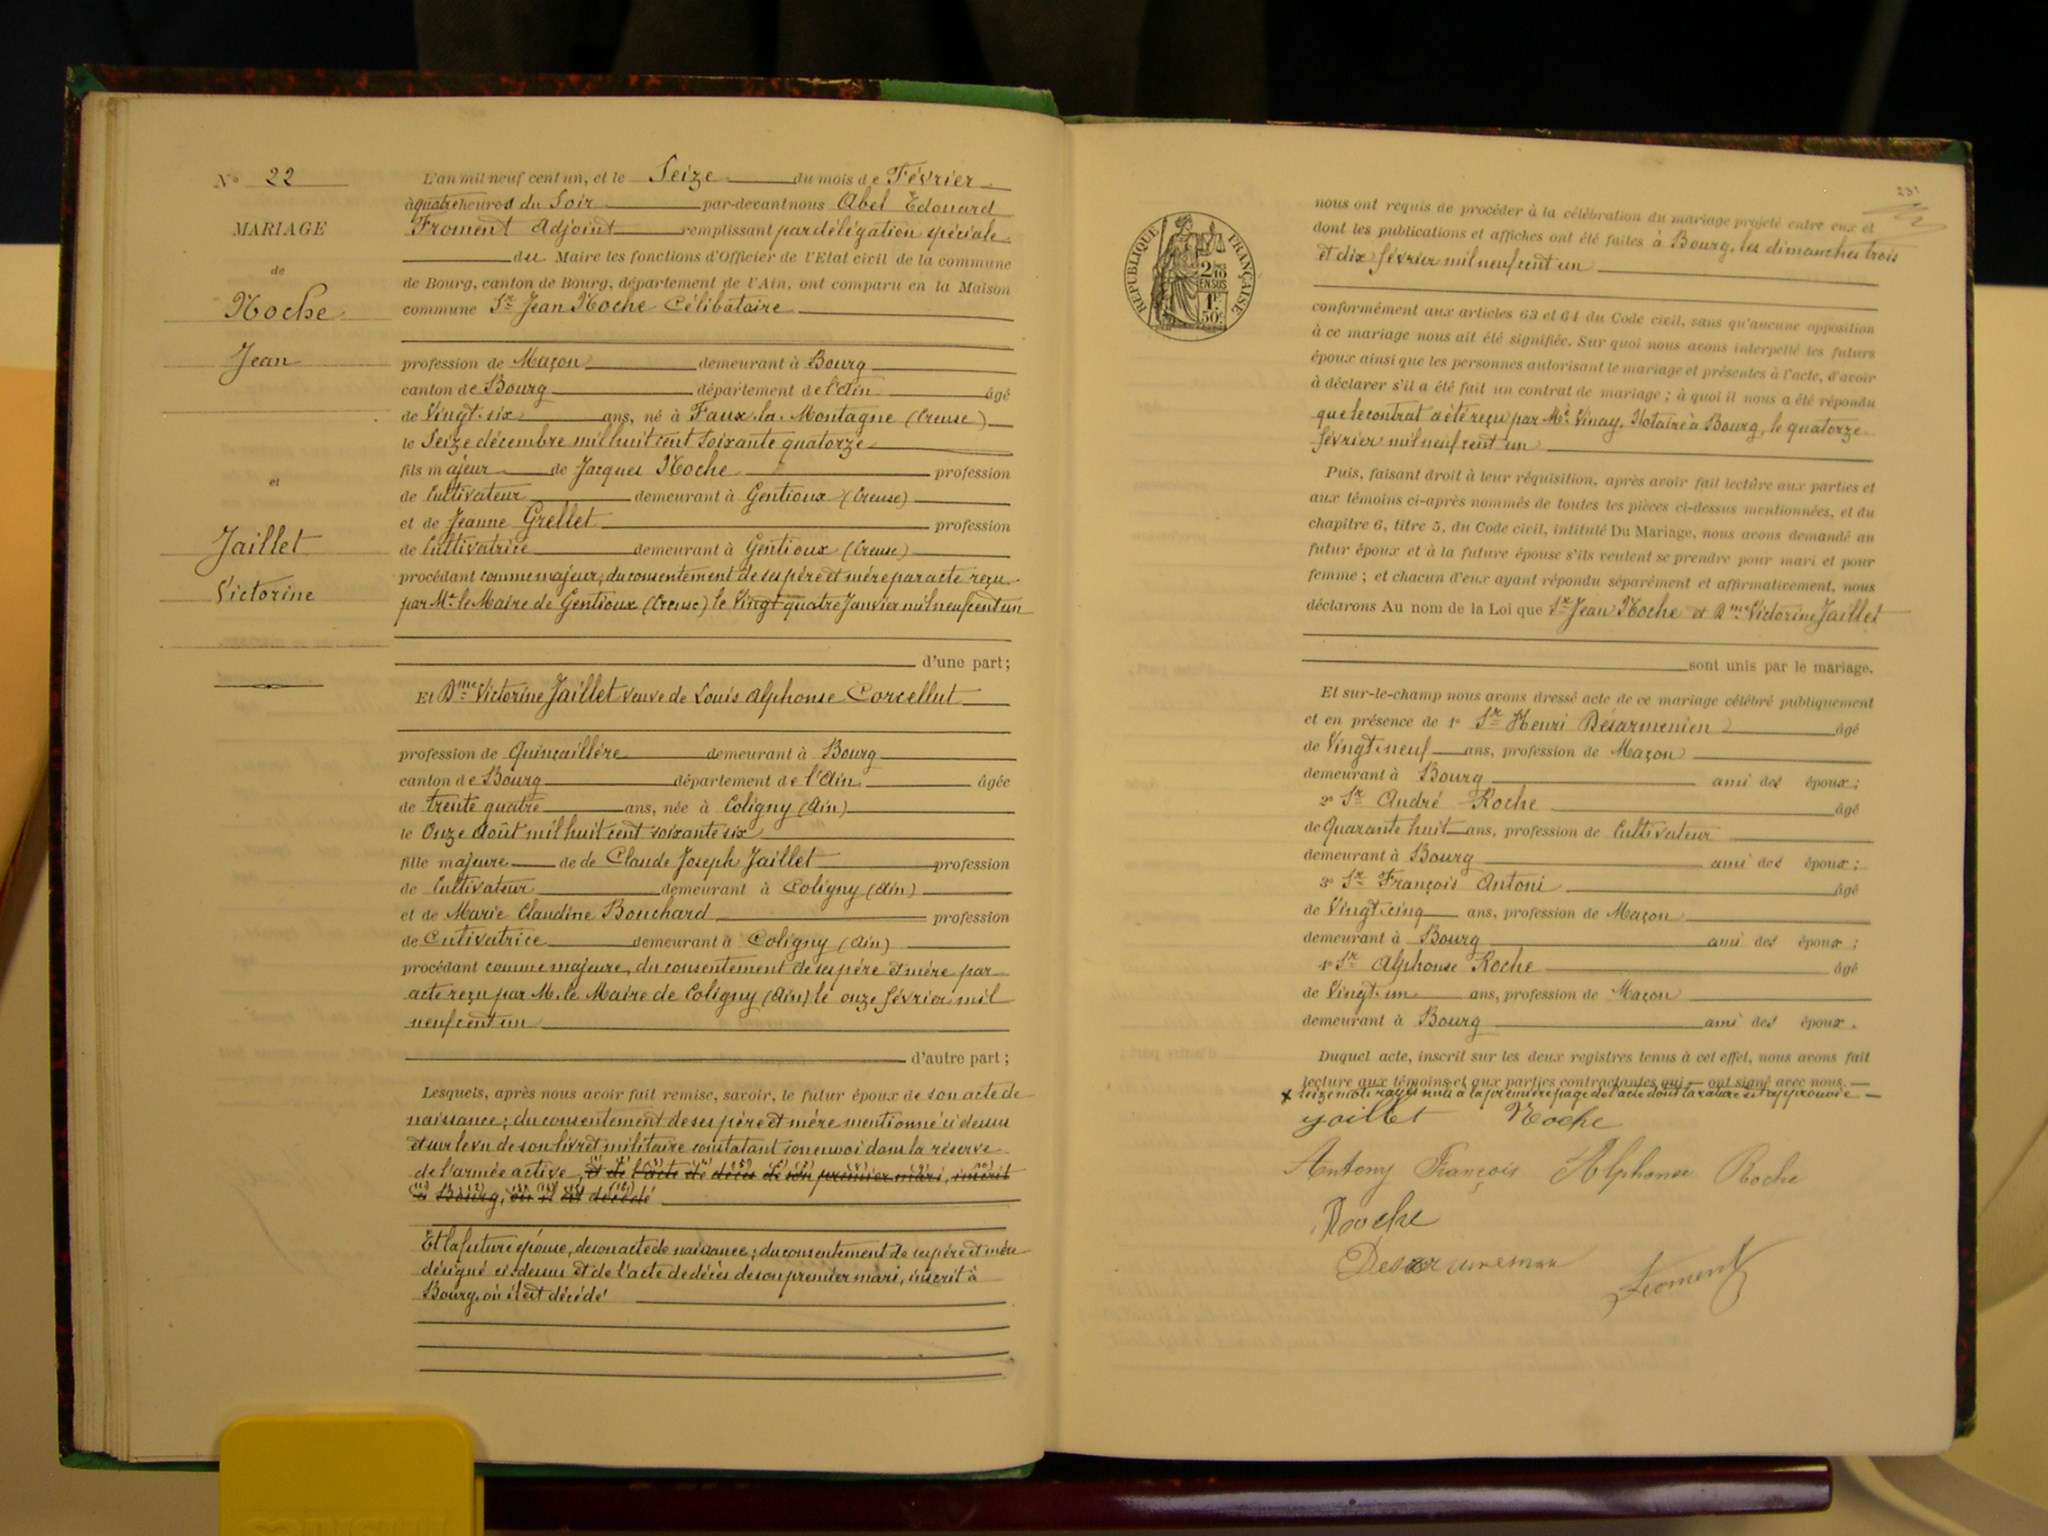 N° 22
MARIAGE
de
Noche
Jean
et
Jaillet
Victorine
L'an mil neuf cent un, et le Seize du mois de Février
à quatre heures du Soir par-devant nous Abel Edouard
Froment Adjoint remplissant par délégation spéciale
du Maire les fonctions d'Officier de l'Etat civil de la commune
de Bourg, canton de Bourg, département de l'Ain, ont comparu en la Maison
commune Sr Jean Noche Célibataire
profession de Maçon demeurant à Bourg
canton de Bourg département de l'Ain âgé
de Vingt-six ans, né à Faux la Montagne (Creuse)
le Seize décembre mil huit cent soixante quatorze
fils majeur de Jacques Noche profession
de Cultivateur demeurant à Gentioux (Creuse)
et de Jeanne Grellet profession
de Cultivatrice demeurant à Gentioux (Creuse)
procédant comme majeur, du consentement de ses père et mère par acte reçu
par Mr le Maire de Gentioux (Creuse) le Vingt quatre Janvier mil neuf cent un
d'une part;
Et Dme Victorine Jaillet veuve de Louis Alphonse Corcellut
profession de Quincaillère demeurant à Bourg
canton de Bourg département de l'Ain âgée
de trente quatre ans, née à Coligny (Ain)
le Onze Août mil huit cent soixante six
fille majeure de de Claude Joseph Jaillet profession
de Cultivateur demeurant à Coligny (Ain)
et de Marie Claudine Bouchard profession
de Cutivatrice demeurant à Coligny (Ain)
procédant comme majeure, du consentement de ses père et mère par
acte reçu par M. le Maire de Coligny (Ain) le onze février mil
neuf cent un
d'autre part;
Lesquels, après nous avoir fait remise, savoir, le futur époux de son acte de
naissance; du consentement de ses père et mère mentionné ci dessus
et sur le vu de son livret militaire constatant son envoi dans la réserve
de l'armée active, et de l'acte de décès de son premier mari, inscrit
à Bourg, où il est décédé
Et la future épouse, de son acte de naissance; du consentement de ses père et mère
désigné ci-dessus et de l'acte de décès de son premier mari, inscrit à
Bourg, où il est décédé
231
RÉPUBLIQUE FRANÇAISE
2/10
EN SUS
1F
50c
nous ont requis de procéder à la célébration du mariage projeté entre eux et
dont les publications et affiches ont été faites à Bourg, les dimanches trois
et dix février mil neuf cent un
conformément aux articles 63 et 64 du Code civil, sans qu'aucune opposition
à ce mariage nous ait été signifiée. Sur quoi nous avons interpellé les futurs
époux ainsi que les personnes autorisant le mariage et présentes à l'acte, d'avoir
à déclarer s'il a été fait un contrat de mariage; à quoi il nous a été répondu
que le contrat a été reçu par Me Vinay, Notaire à Bourg, le quatorze
février mil neuf cent un
Puis, faisant droit à leur réquisition, après avoir fait lecture aux parties et
aux témoins ci-après nommés de toutes les pièces ci-dessus mentionnées, et du
chapitre 6, titre 5, du Code civil, intitulé Du Mariage, nous avons demandé au
futur époux et à la future épouse s'ils veulent se prendre pour mari et pour
femme; et chacun d'eux ayant répondu séparément et affirmativement, nous
déclarons Au nom de la Loi que Sr Jean Noche et Dme Victorine Jaillet
sont unis par le mariage.
Et sur-le-champ nous avons dressé acte de ce mariage célébré publiquement
et en présence de 1° Sr Henri Désarmenien âgé
de Vingt-neuf ans, profession de Maçon
demeurant à Bourg ami des époux;
2° Sr André Roche âgé
de Quarante huit ans, profession de Cultivateur
demeurant à Bourg ami des époux;
3° Sr François Antoni âgé
de Vingt-cinq ans, profession de Maçon
demeurant à Bourg ami des époux;
4° Sr Alphonse Roche âgé
de Vingt-un ans, profession de Maçon
demeurant à Bourg ami des époux.
Duquel acte, inscrit sur les deux registres tenus à cet effet, nous avons fait
lecture aux témoins et aux parties contractantes qui ont signé avec nous.
x seize mots rayés nuls à la première page de l'acte dont la rature est approuvée
Jaillet Noche
Antony François Alphonse Roche
Roche
Desarmenien
Froment